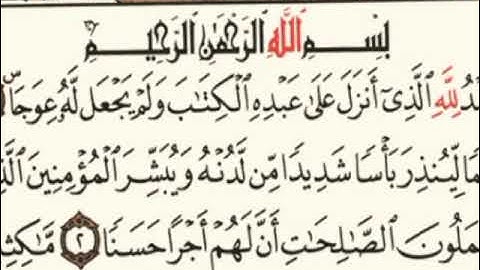 بِسْمِ ٱللَّهِ ٱلرَّحْمَٰنِ ٱلرَّحِيمِ
دُ لِلَّهِ ٱلَّذِىٓ أَنزَلَ عَلَىٰ عَبْدِهِ ٱلْكِتَٰبَ وَلَمْ يَجْعَل لَّهُۥ عِوَجَاۜ
مًا لِّيُنذِرَ بَأْسًا شَدِيدًا مِّن لَّدُنْهُ وَيُبَشِّرَ ٱلْمُؤْمِنِينَ ٱلَّذِ
مَلُونَ ٱلصَّٰلِحَٰتِ أَنَّ لَهُمْ أَجْرًا حَسَنًا ٢ مَّٰكِثِ